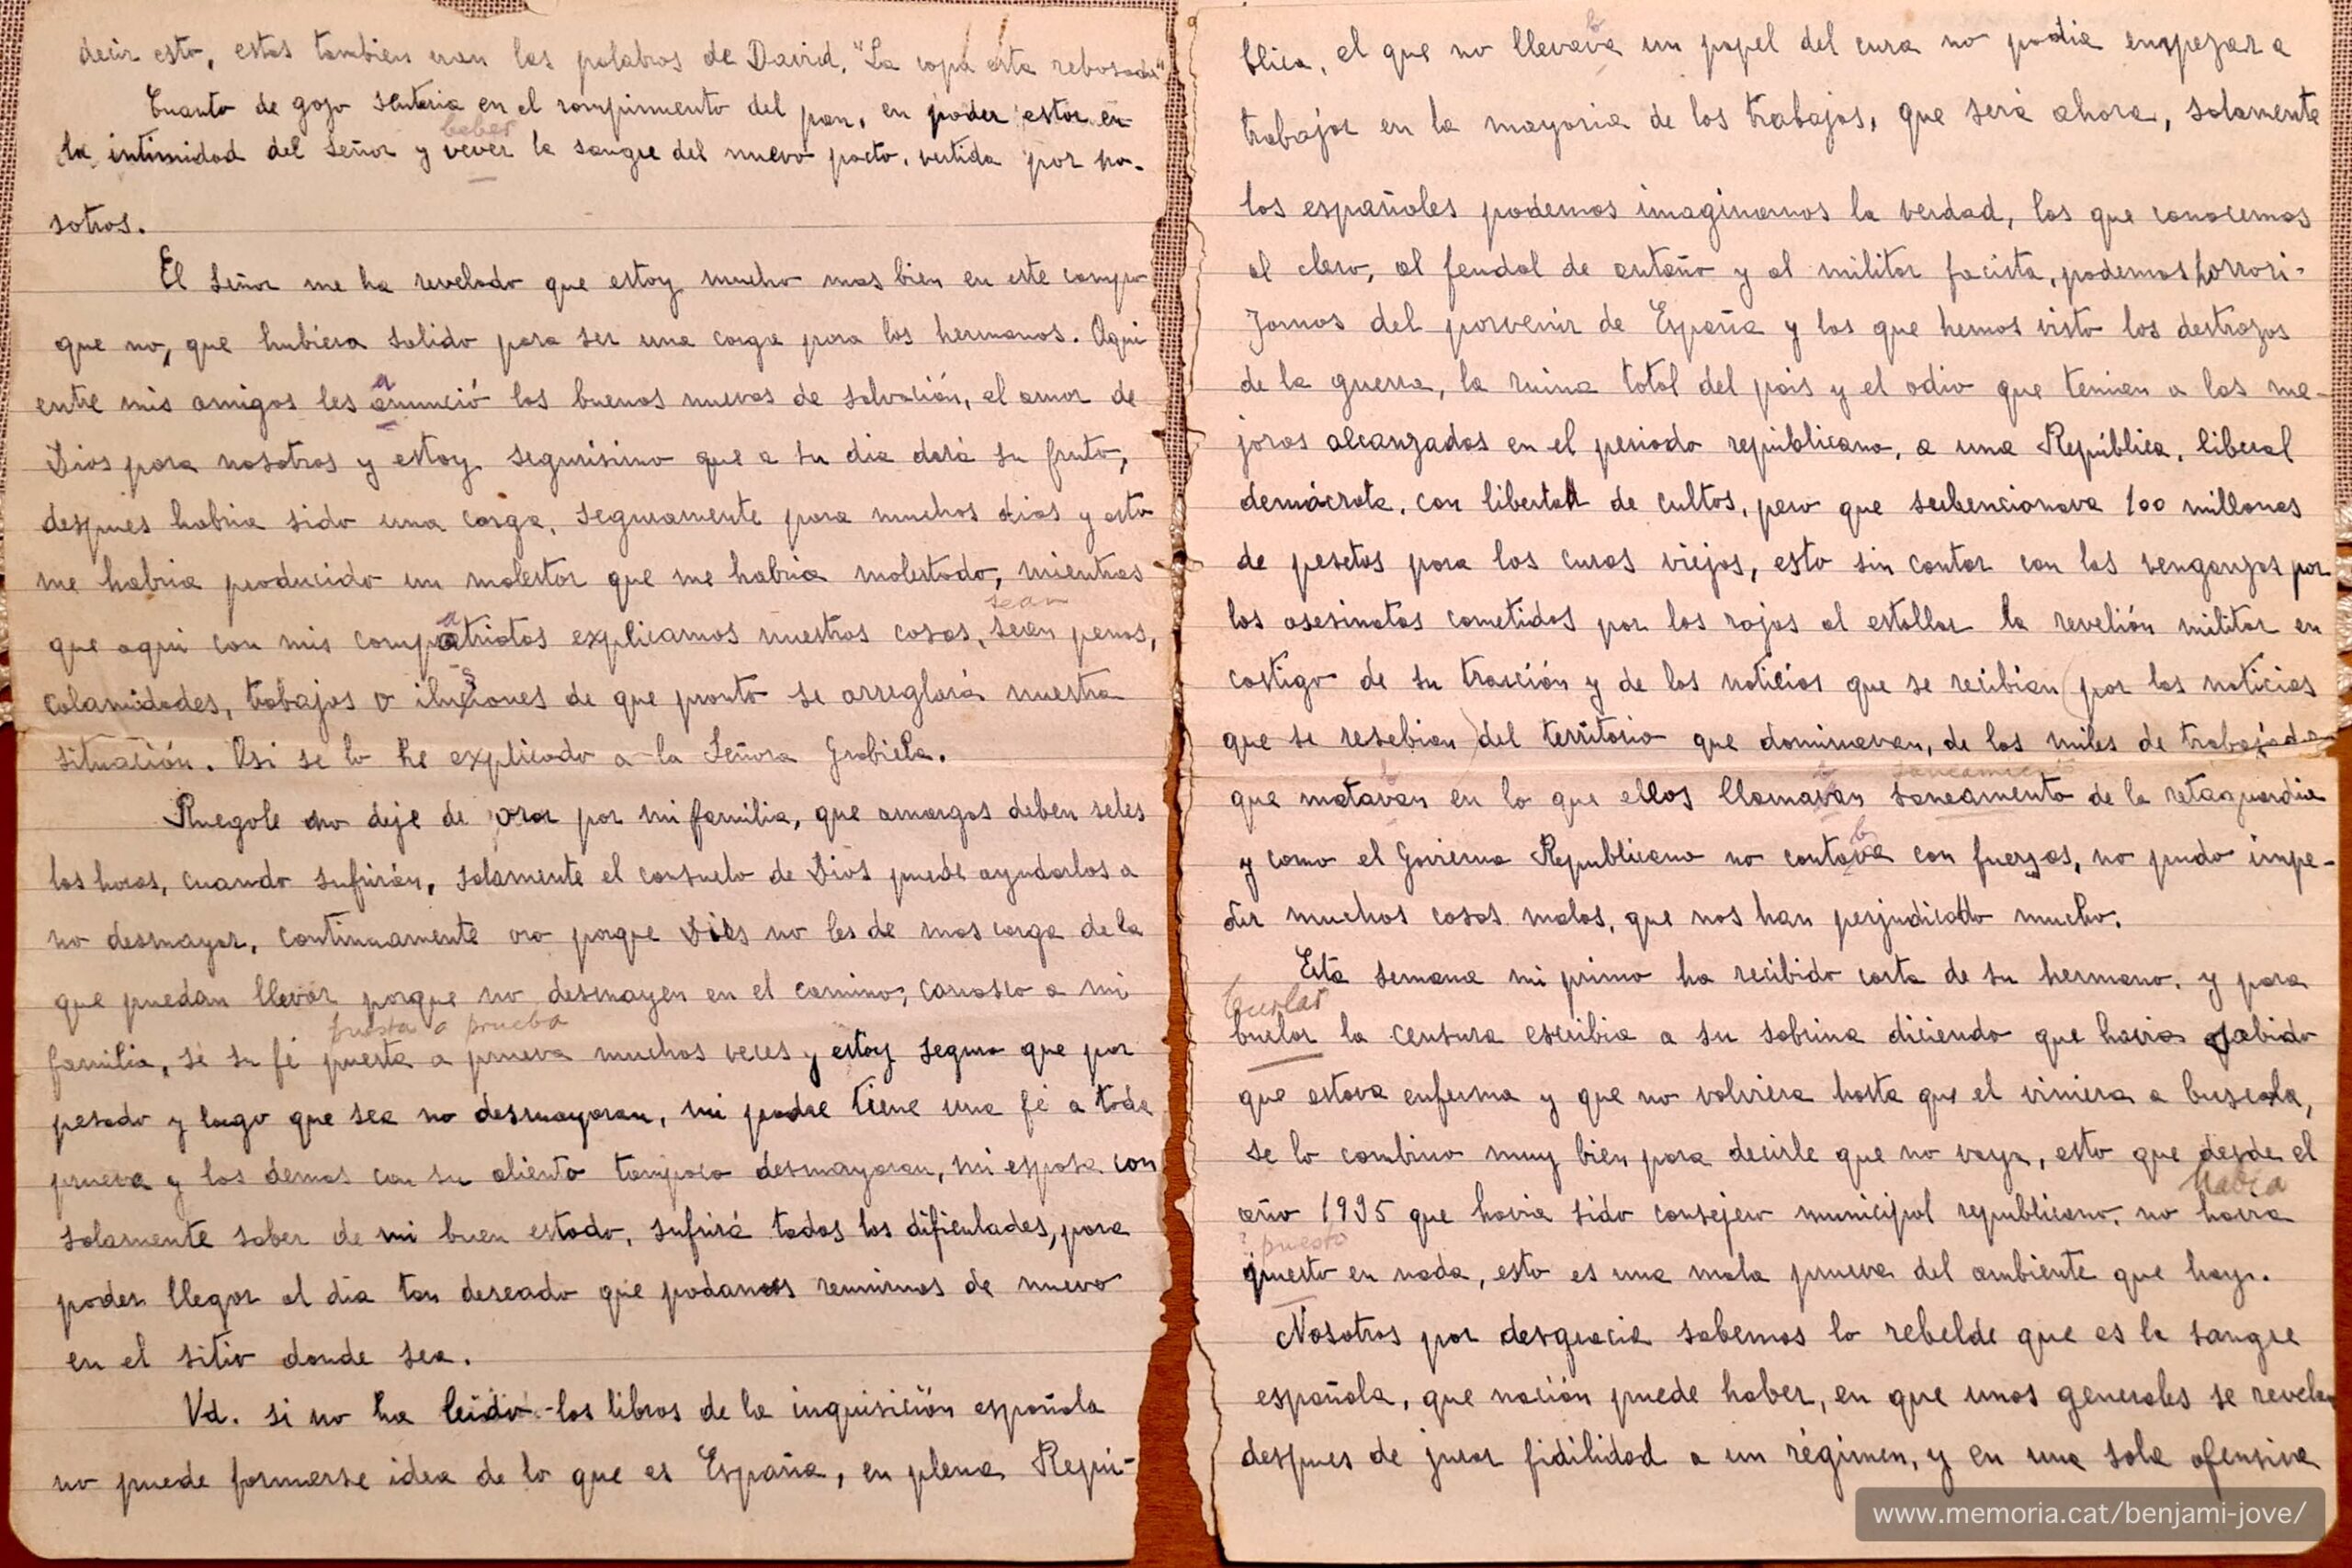 decir esto, estas tambien eran las palabras de David. "La copa esta rebosada"
Cuanto de gozo senteria en el rompimiento del pan, en poder estar en
beber
la intimidad del Señor y vever la sangre del nuevo pacto, vertida por no-
sotros.
El Señor me ha revelado que estoy mucho mas bien en este campo
que no, que hubiera salido para ser una carga para los hermanos. Aqui
a
entre mis amigos les enunció las buenas nuevas de salvación, el amor de
Dios para nosotros y estoy segurisimo que a su dia dará su fruto,
despues habria sido una carga, seguramente para muchos dias y esto
me habria producido un malestar que me habria molestado, mientras
sean
a
que aqui con mis compatriotas explicamos nuestras cosas, seen penas,
s
calamidades, trabajos o iluciones de que pronto se arreglará nuestra
situación. Asi se lo he explicado a la Señora Grabiela.
Ruegole no deje de orar por mi familia, que amargas deben seles
las horas, cuando sufrirán, solamente el consuelo de Dios puede ayudarlos a
no desmayar, continuamente oro porque Dios no les de mas carga de la
que puedan llevar porque no desmayen en el camino; conosco a mi
puesta a prueba
familia, sé su fé puesta a prueva muchas veces y estoy seguro que por
pesado y largo que sea no desmayaran, mi padre tiene una fé a toda
prueva y los demas con su aliento tampoco desmayaran, mi esposa con
solamente saber de mi buen estado, sufrirá todas las dificulades, para
poder llegar al dia tan deseado que podamos reunirnos de nuevo
en el sitio donde sea.
Vd. si no ha leido los libros de la inquisición española
no puede formarse idea de lo que es España, en plena Repú-
b
blica, el que no llevava un papel del cura no podia empezar a
trabajar en la mayoria de los trabajos, que será ahora, solamente
los españoles podemos imaginarnos la verdad, los que conocemos
al clero, al feudal de antaño y al militar facista, podemos horrori-
zarnos del porvenir de España y los que hemos visto los destrozos
de la guerra, la ruina total del pais y el odio que tenien a las me-
joras alcanzadas en el periodo republicano, a una República, liberal
demócrata, con libertat de cultos, pero que subencionava 100 millones
de pesetas para los curas viejos, esto sin contar con las venganzas por
los asesinatos cometidos por los rojos al estallar la revelión militar en
castigo de su traición y de las noticias que se recibian (por las noticias
que se resebian) del territorio que dominavan, de los miles de trabajado
b b saneamiento
que matavan en lo que ellos llamavan saneamento de la retaguardia
b
y como el Govierno Republicano no contava con fuerzas, no pudo impe-
dir muchas cosas malas, que nos han perjudicado mucho.
Esta semana mi primo ha recibido carta de su hermano, y para
burlar
buelar la censura escribia a su sobrina diciendo que havia sabido
que estava enferma y que no volviera hasta que el viniera a buscala,
se lo combino muy bien para decirle que no vaya, esto que desde el
había
año 1935 que havia sido consejero municipal republicano, no havia
? puesto
questo en nada, esto es una mala prueva del ambiente que hay.
Nosotros por desgracia sabemos lo rebelde que es la sangre
española, que nación puede haber, en que unos generales se revelan
despues de jurar fidilidad a un régimen, y en una sola ofensiva
www.memoria.cat/benjami-jove/